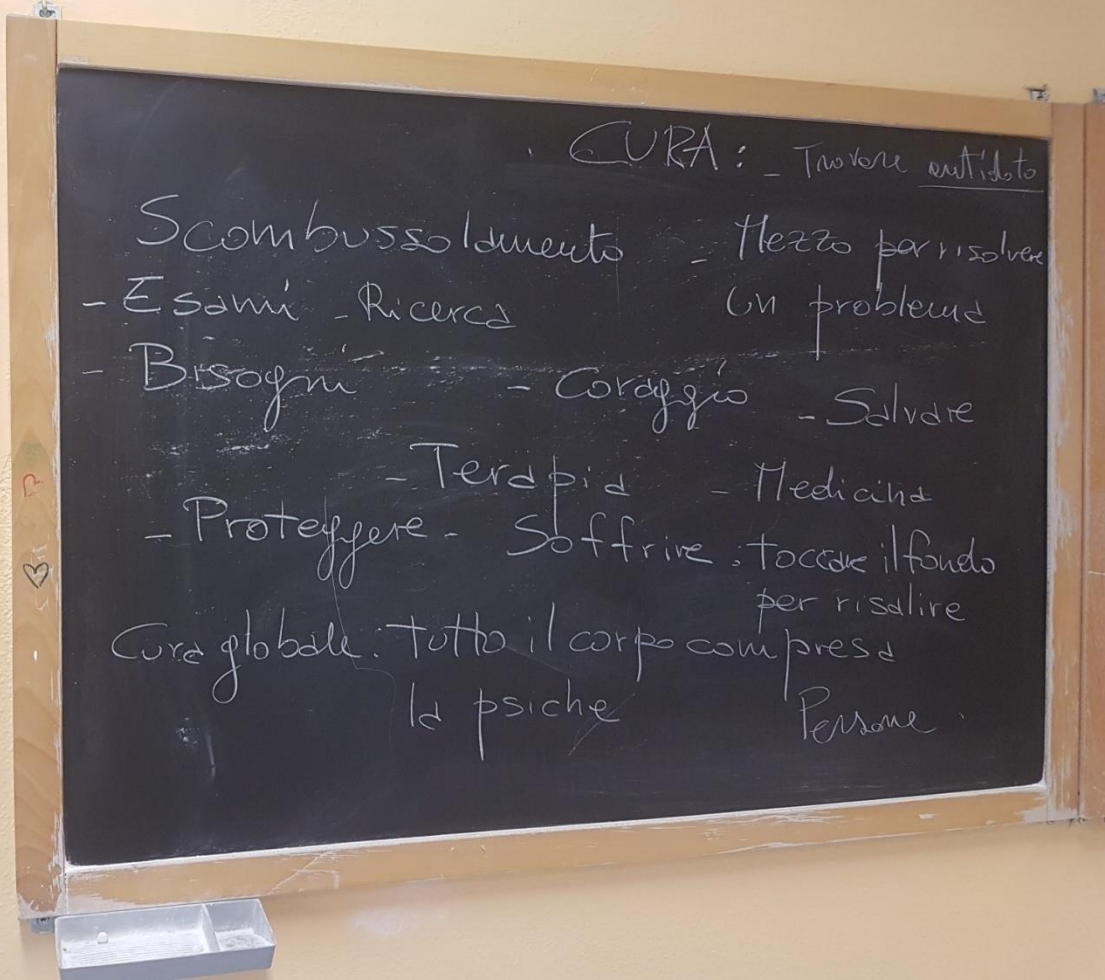 CURA: - Trovare antidoto
Scombussolamento - Mezzo per risolvere
un problema
- Esami - Ricerca
- Bisogni - Coraggio - Salvare
- Terapia - Medicina
- Proteggere - Soffrire: toccare il fondo
per risalire
Cura globale: tutto il corpo compresa
la psiche
Persone